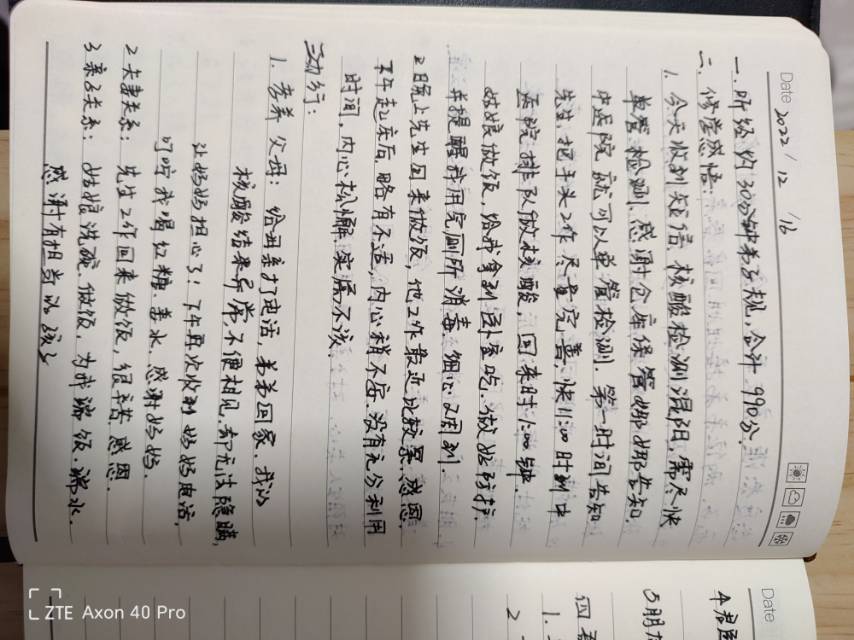 Date 2022 / 12 / 16
一. 听经约30分钟弟子规, 合计990分.
二. 修学感悟:
1. 今天收到短信 核酸检测混阳, 需尽快
单管检测. 感谢仓库保管娜娜告知.
中医院就可以单管检测. 第一时间告知
先生. 把手头工作尽量完善. 快11:00时到中
医院排队做核酸, 回来时1:00钟.
姑娘做饭, 给我拿到卧室吃. 做好防护.
并提醒我用完厕所消毒. 细心周到.
2. 晚上先生回来做饭, 他工作最近比较累. 感恩.
下午起床后, 略有不适, 内心稍不安. 没有充分利用
时间, 内心松懈. 实属不该.
三. 力行:
1. 孝养父母: 给母亲打电话, 弟弟回家. 我的
核酸结果异常, 不便相见. 却无法隐瞒,
让妈妈担心了! 下午再次收到妈妈电话,
叮咛我喝红糖. 姜水. 感谢妈妈.
2. 夫妻关系: 先生工作回来做饭, 很辛苦. 感恩.
3. 亲子关系: 姑娘洗碗. 做饭, 为我端饭. 端水.
感谢有担当的孩子
Date
5朋
四
1.
2
ZTE Axon 40 Pro